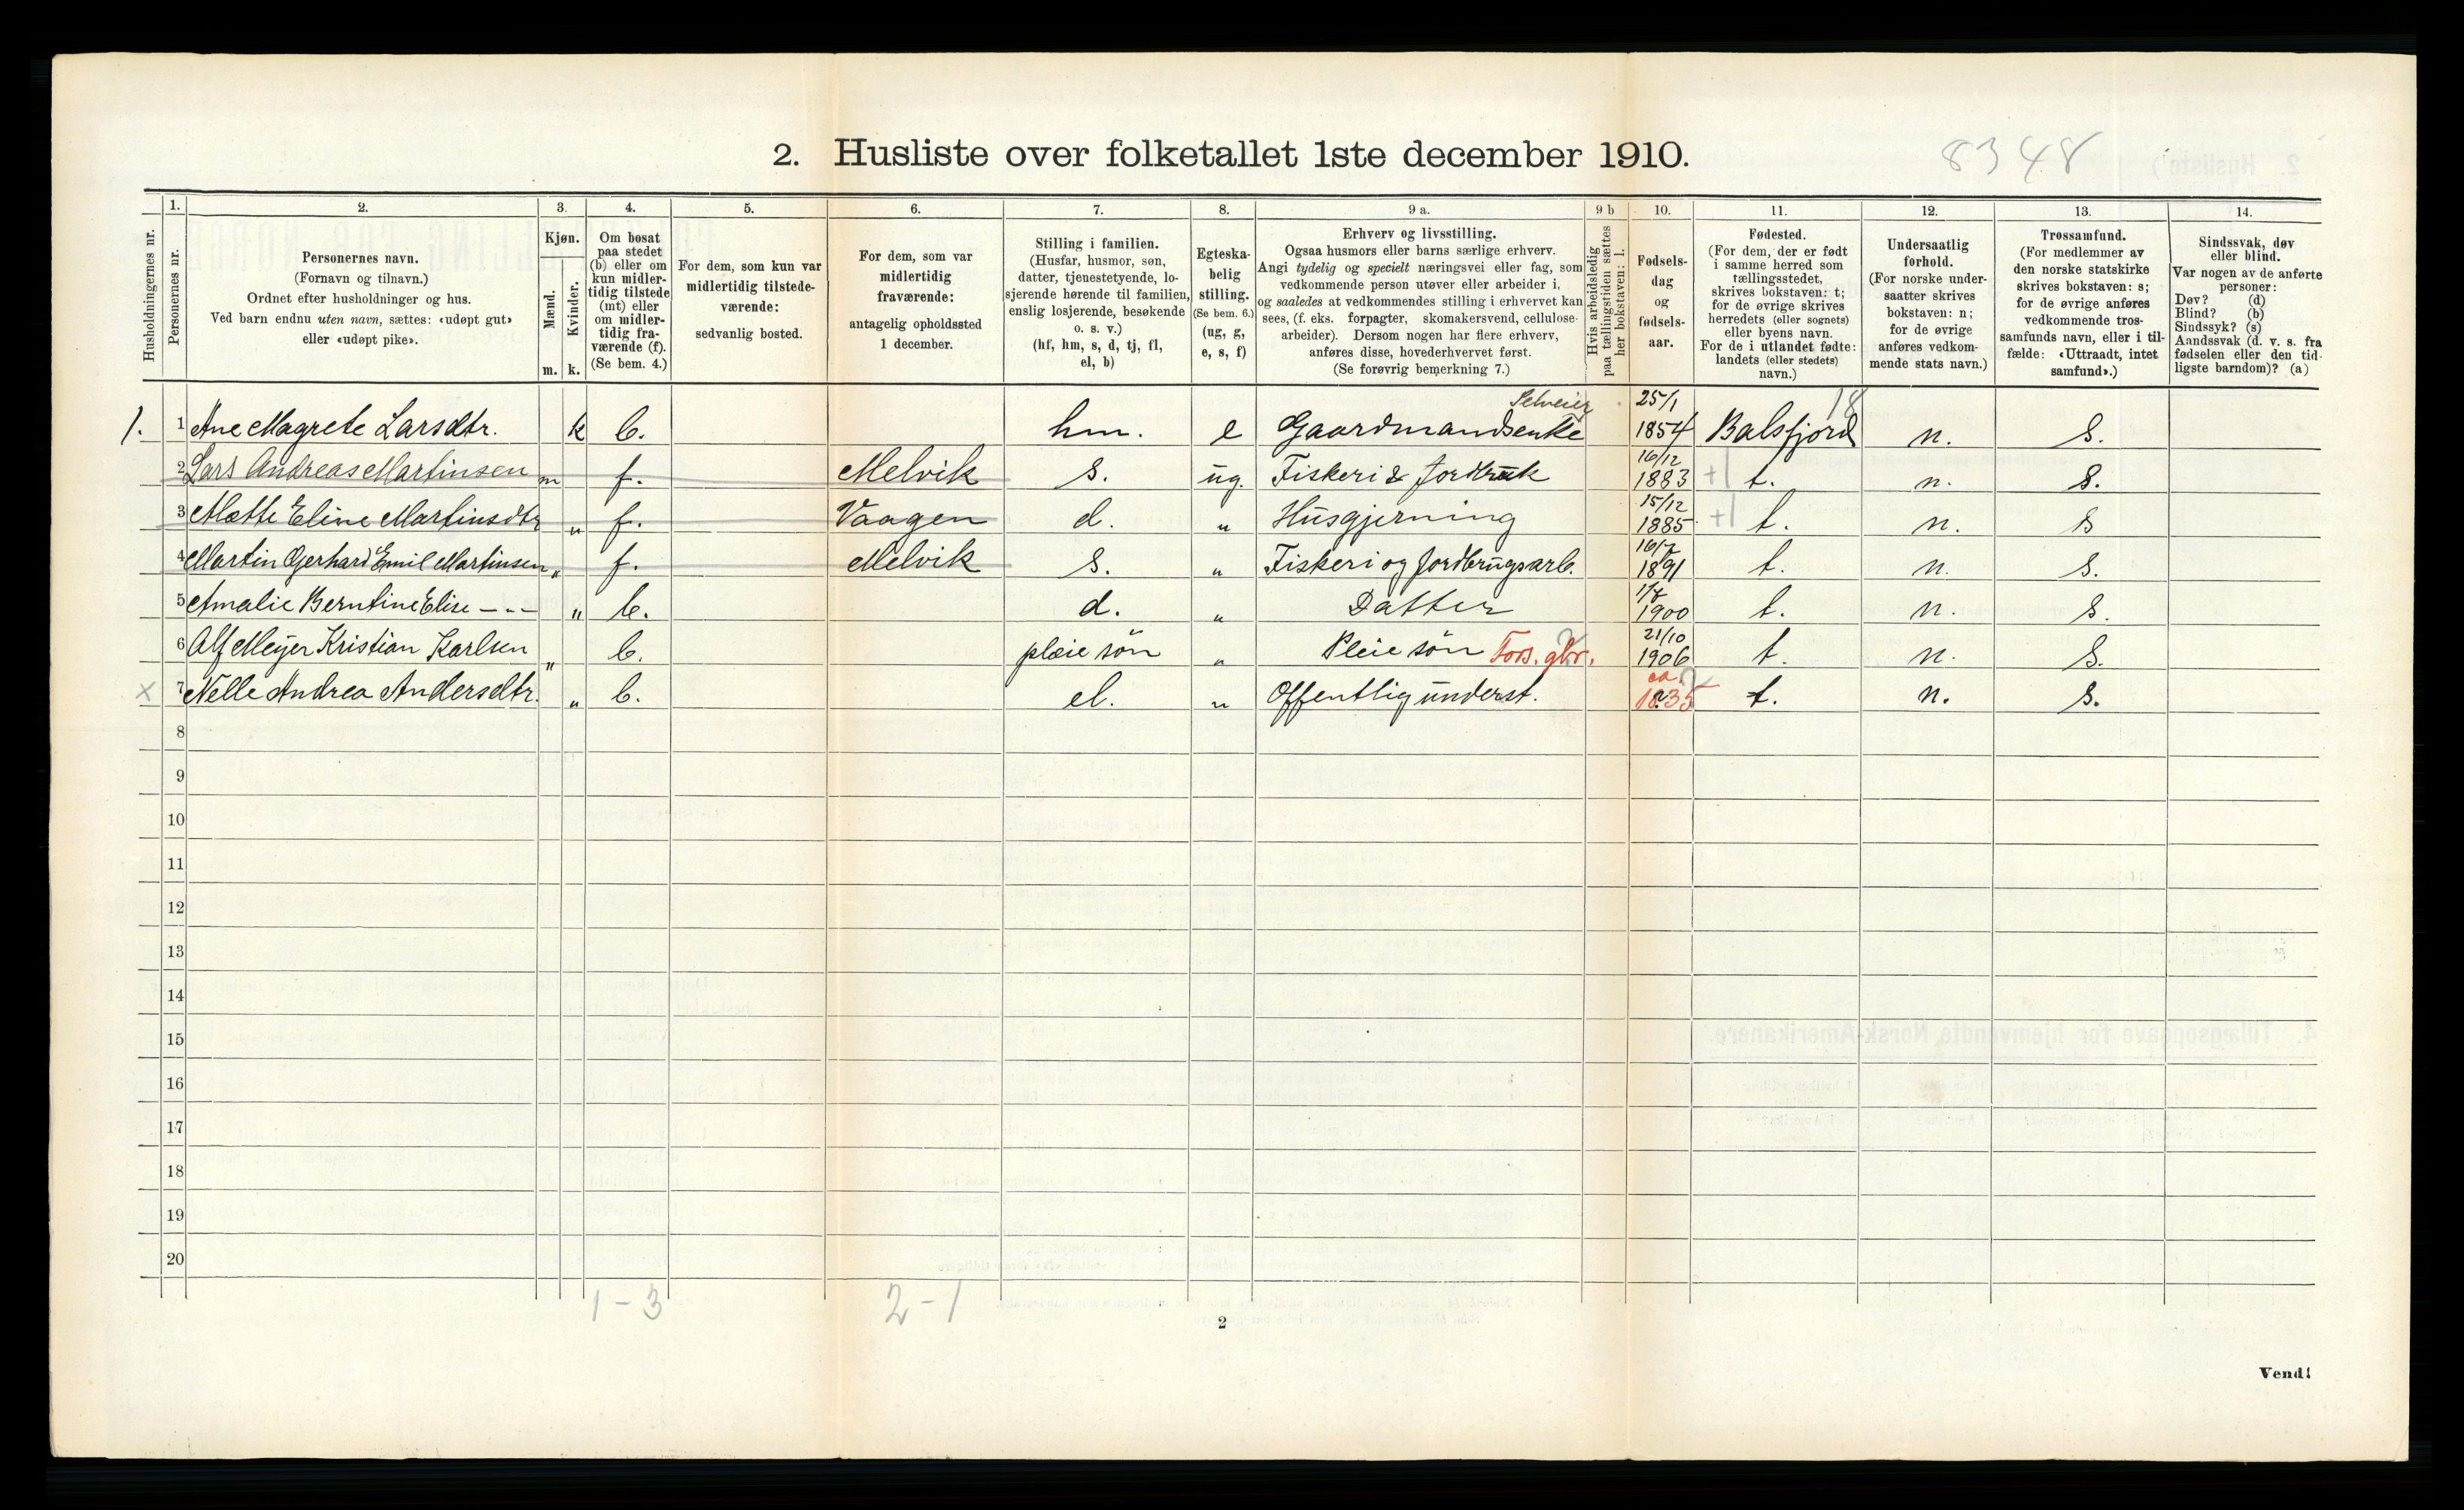 2. Husliste over folketallet 1ste december 1910.
8348
Husholdningernes nr.
1. Personernes nr.
2. Personernes navn. (Fornavn og tilnavn.) Ordnet efter husholdninger og hus. Ved barn endnu uten navn, sættes: «udøpt gut» eller «udøpt pike».
3. Kjøn. Mænd. m. Kvinder. k.
4. Om bosat paa stedet (b) eller om kun midler-tidig tilstede (mt) eller om midler-tidig fra-værende (f). (Se bem. 4.)
5. For dem, som kun var midlertidig tilstede-værende: sedvanlig bosted.
6. For dem, som var midlertidig fraværende: antagelig opholdssted 1 december.
7. Stilling i familien. (Husfar, husmor, søn, datter, tjenestetyende, lo-sjerende hørende til familien, enslig losjerende, besøkende o. s. v.) (hf, hm, s, d, tj, fl, el, b)
8. Egteska-belig stilling. (Se bem. 6.) (ug, g, e, s, f)
9 a. Erhverv og livsstilling. Ogsaa husmors eller barns særlige erhverv. Angi tydelig og specielt næringsvei eller fag, som vedkommende person utøver eller arbeider i, og saaledes at vedkommendes stilling i erhvervet kan sees, (f. eks. forpagter, skomakersvend, cellulose-arbeider). Dersom nogen har flere erhverv, anføres disse, hovederhvervet først. (Se forøvrig bemerkning 7.)
9 b Hvis arbeidsledig paa tællingstiden sættes her bokstaven: l.
10. Fødsels-dag og fødsels-aar.
11. Fødested. (For dem, der er født i samme herred som tællingsstedet, skrives bokstaven: t; for de øvrige skrives herredets (eller sognets) eller byens navn. For de i utlandet fødte: landets (eller stedets) navn.)
12. Undersaatlig forhold. (For norske under-saatter skrives bokstaven: n; for de øvrige anføres vedkom-mende stats navn.)
13. Trossamfund. (For medlemmer av den norske statskirke skrives bokstaven: s; for de øvrige anføres vedkommende tros-samfunds navn, eller i til-fælde: «Uttraadt, intet samfund».)
14. Sindssvak, døv eller blind. Var nogen av de anførte personer: Døv? (d) Blind? (b) Sindssyk? (s) Aandssvak (d. v. s. fra fødselen eller den tid-ligste barndom)? (a)
1. 1 Ane Magrete Larsdtr. k b. hm. e Selveier Gaardmandsenke 25/1 1854 Balsfjord 18 n. s.
2 Lars Andreas Martinsen m f. Melvik s. ug. Fiskeri & Jordbruk 16/12 1883 +1 t. n. s.
3 Mætte Eline Martinsdtr " f. Vaagen d. " Husgjerning 15/12 1885 +1 t. n. s
4 Martin Gerhard Emil Martinsen " f. Melvik s. " Fiskeri og Jordbrugsarb. 16/7 1891 t. n. s.
5 Amalie Berntine Elise - - - " b. d. " Datter 1/7 1900 t. n. s.
6 Alf Meyer Kristian Karlsen " b. pleie søn " Pleie søn Fors. gbr. 21/10 1906 t. n. s.
x 7 Nelle Andrea Andersdtr. " b. el. " Offentlig underst. ca. 1835 t. n. s.
8
9
10
11
12
13
14
15
16
17
18
19
20
1 - 3 2 - 1
2
Vend!